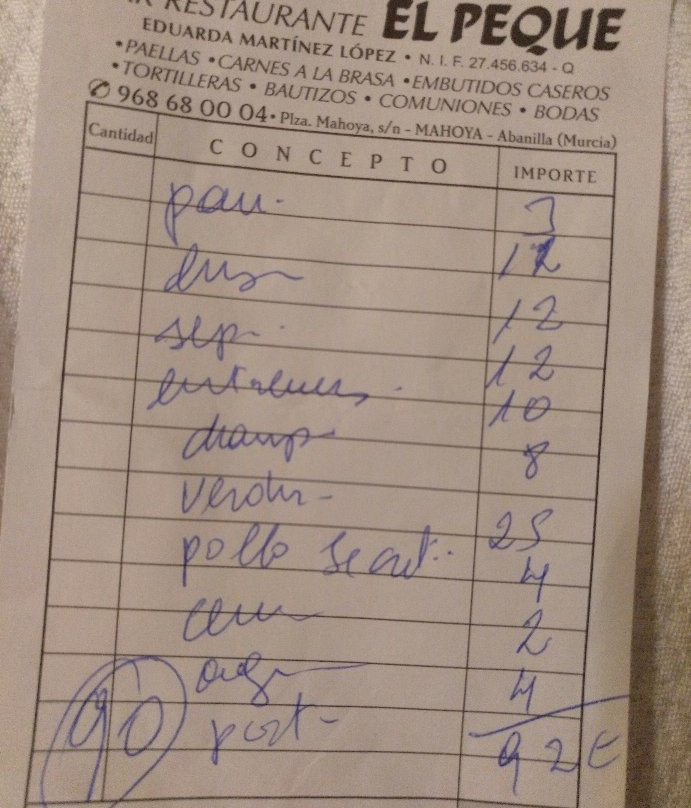 RESTAURANTE EL PEQUE
EDUARDA MARTÍNEZ LÓPEZ • N. I. F. 27.456.634 - Q
•PAELLAS •CARNES A LA BRASA •EMBUTIDOS CASEROS
•TORTILLERAS • BAUTIZOS • COMUNIONES • BODAS
✆ 968 68 00 04 • Plza. Mahoya, s/n - MAHOYA - Abanilla (Murcia)
Cantidad CONCEPTO IMPORTE
pan 3
12
sep. 12
12
champ 10
verdu- 8
pollo secret.. 25
4
2
post- 4
90 92€